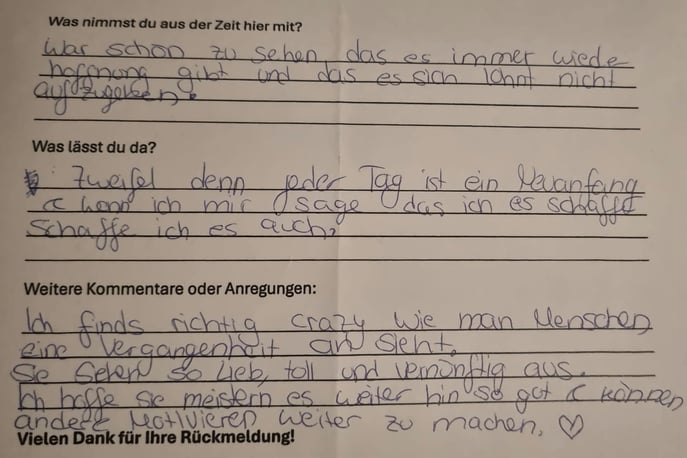 Was nimmst du aus der Zeit hier mit?
War schön zu sehen, das es immer wiede
hoffnung gibt und das es sich lohnt nicht
aufzugeben.
Was lässt du da?
: Zweifel denn jeder Tag ist ein Neuanfang
& wenn ich mir sage das ich es schaffe
schaffe ich es auch.
Weitere Kommentare oder Anregungen:
Ich finds richtig crazy wie man Menschen
eine Vergangenheit an sieht.
Sie sehen so lieb, toll und vernünftig aus.
Ich hoffe Sie meistern es weiter hin so gut & können
andere Motivieren weiter zu machen. ♡
Vielen Dank für Ihre Rückmeldung!